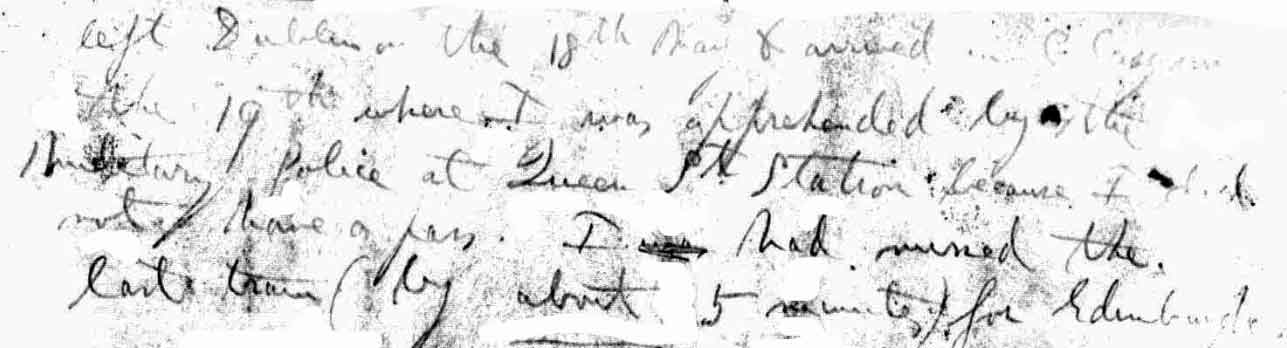 left Dublin on the 18th May & arrived in Glasgow
the 19th where I was apprehended by the
Military Police at Queen St. Station because I did
not have a pass. I was had missed the
last train (by about 5 minutes) for Edinburgh.